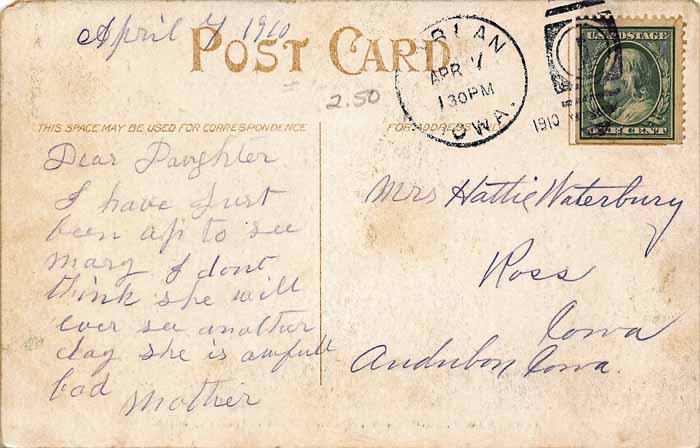 April 7 1910
POST CARD
RLAN
APR 7
130PM
OWA.
1910
U.S. POSTAGE
ONE CENT
2.50
THIS SPACE MAY BE USED FOR CORRESPONDENCE
FOR ADDRESS
Dear Daughter
I have Just
been up to see
mary I dont
think she will
ever see another
day she is awfull
bad
Mother
Mrs Hattie Waterbury
Ross
Iowa
Audubon Iowa.